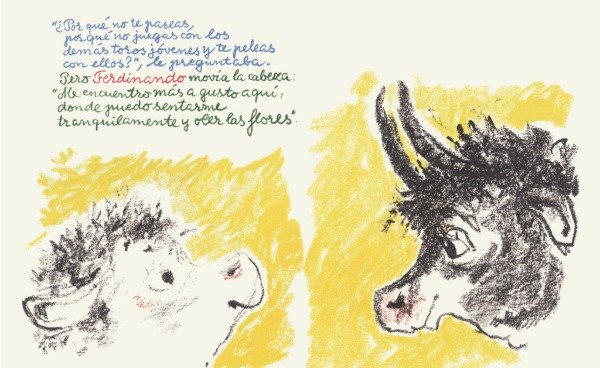 "¿Por qué no te paseas,
por qué no juegas con los
demás toros jóvenes y te peleas
con ellos?", le preguntaba.
Pero Ferdinando movía la cabeza:
"Me encuentro más a gusto aquí,
donde puedo sentarme
tranquilamente y oler las flores".